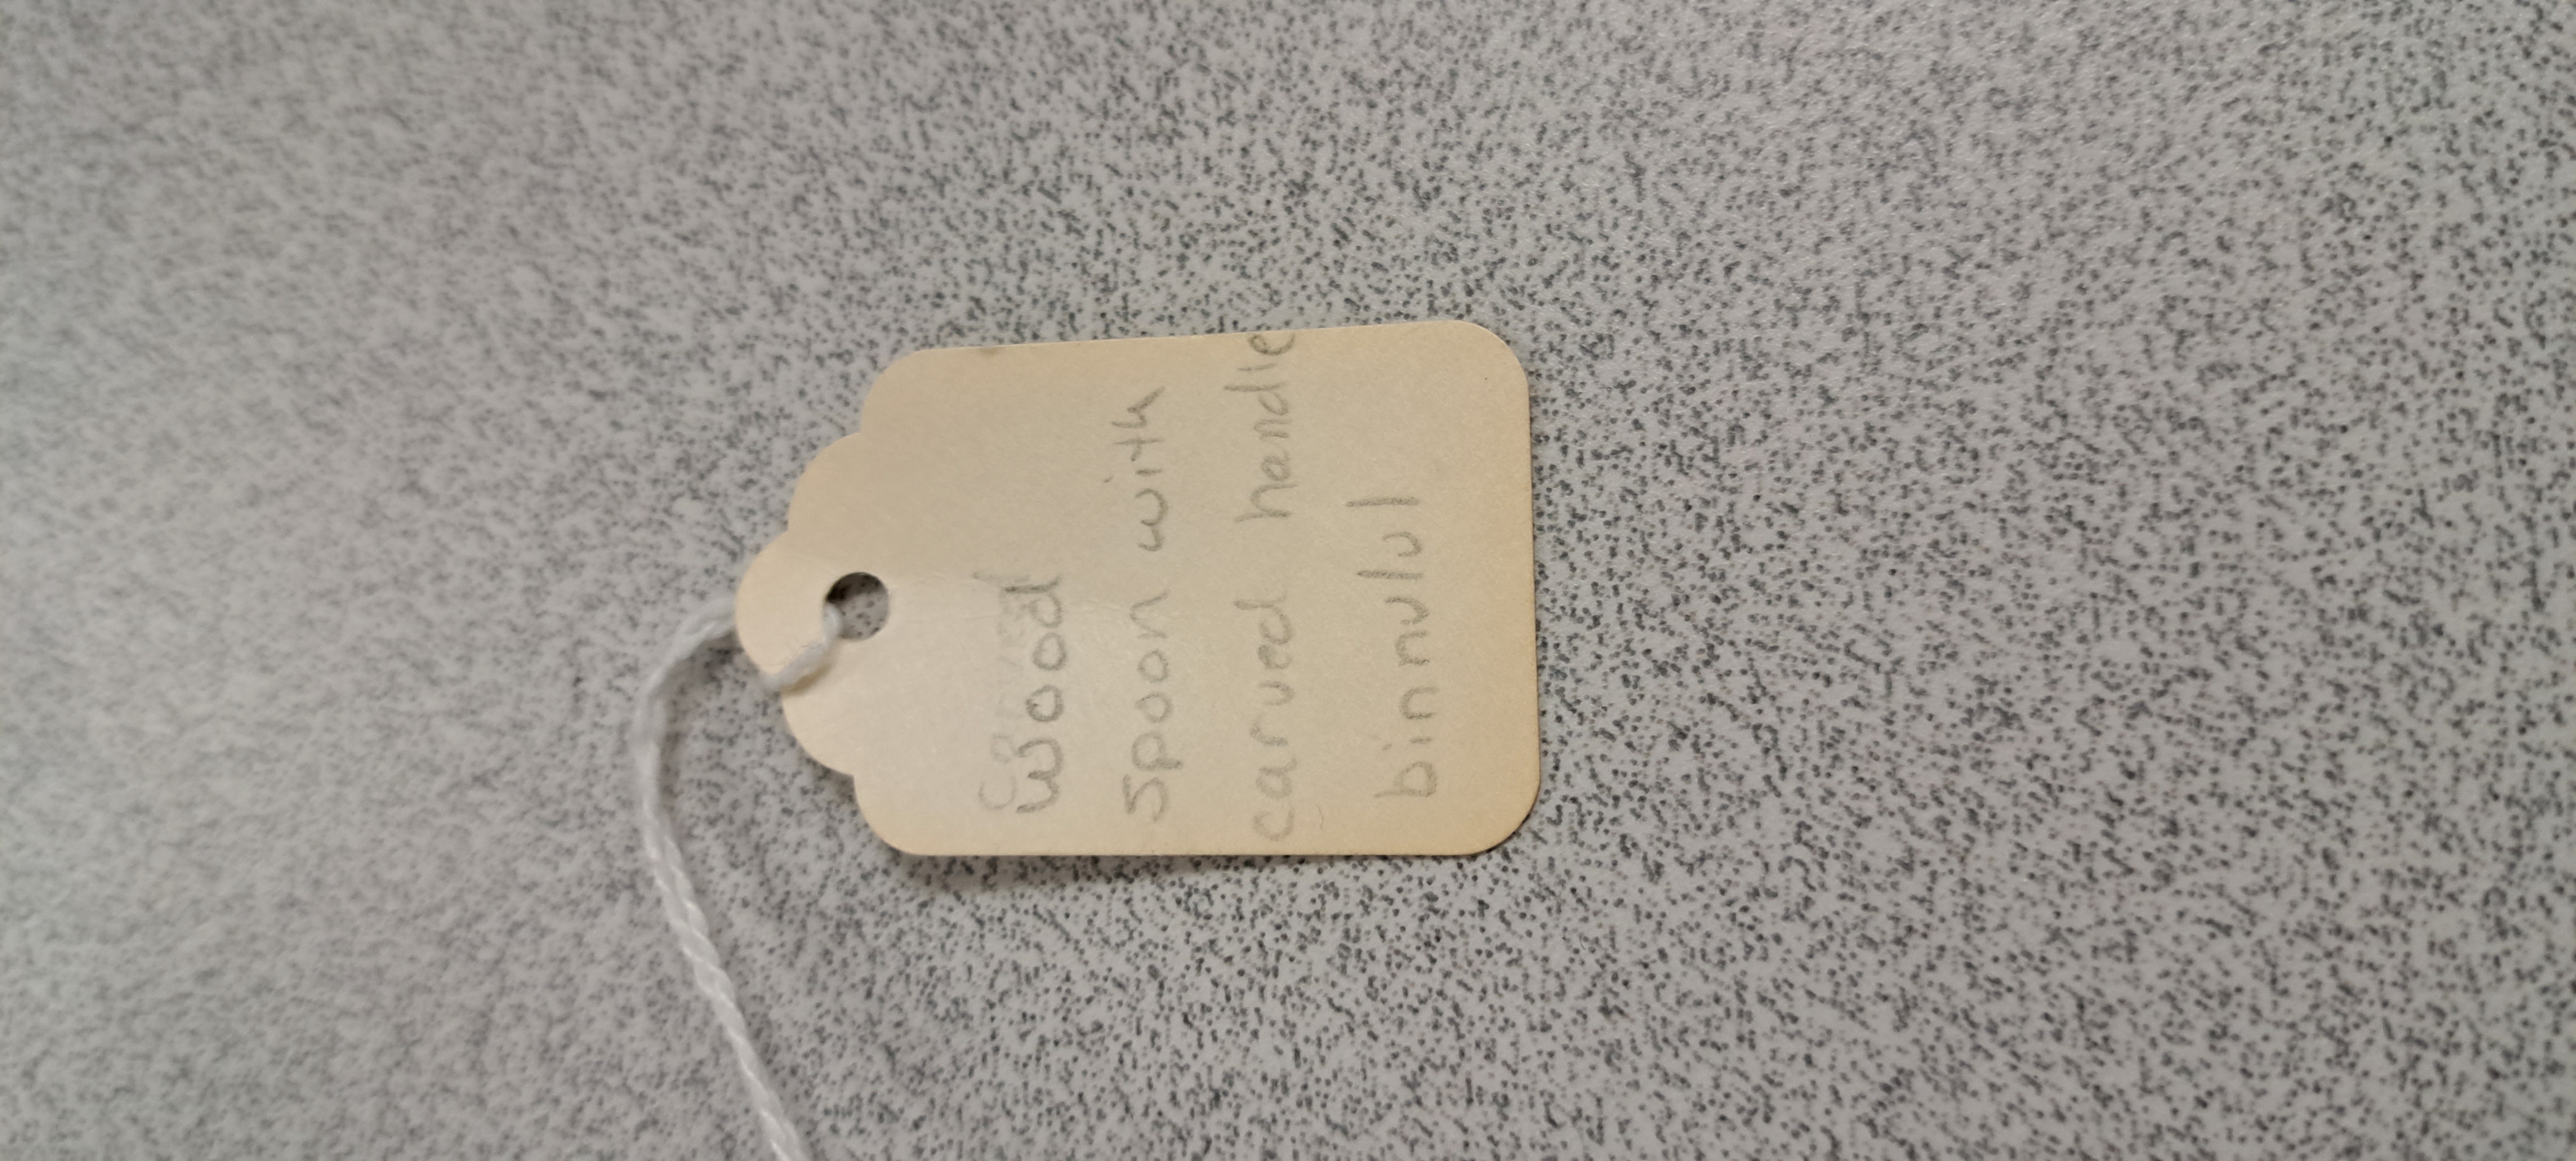 Carved
Wood
Spoon with
carved handle
binnulul